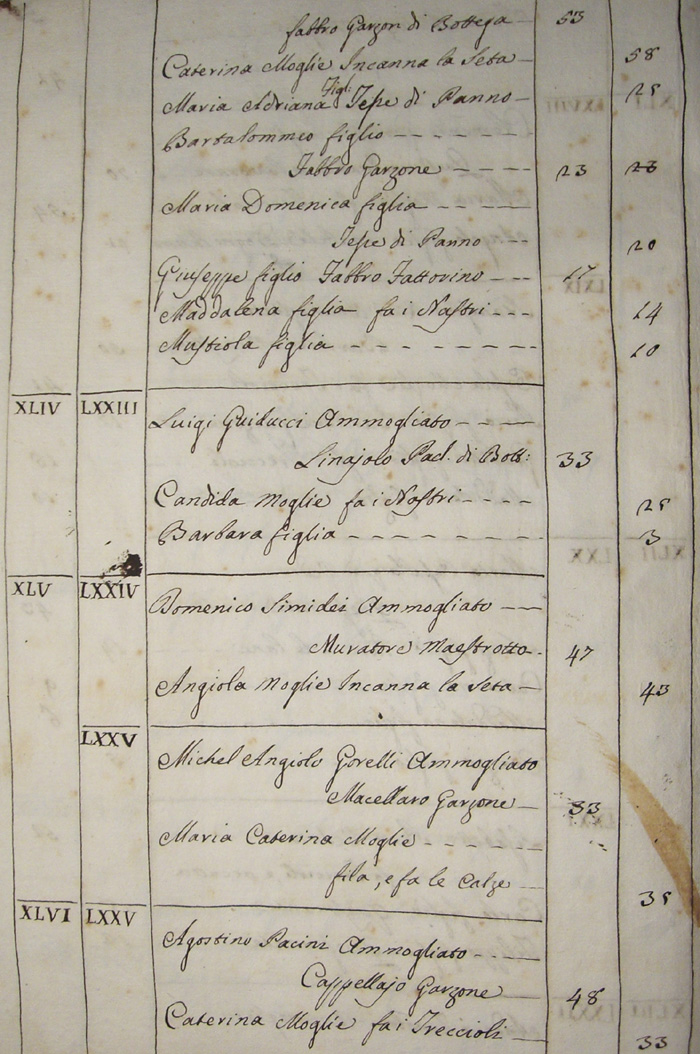 fabbro Garzon di Bottega — 53
Caterina Moglie Incanna la Seta — 58
Figl:
Maria Adriana Tesse di Panno — 25
Bartalommeo figlio - - - -
Fabbro Garzone - - - - 23 23
Maria Domenica figlia - - - -
Tesse di Panno - - 20
Giuseppe figlio Fabbro Fattorino - - - 17
Maddalena figlia fa i Nastri - - - 14
Mustiola figlia - - - - - - - 10
XLIV LXXIII
Luigi Guiducci Ammogliato - - - -
Linajolo Pad. di Bott: 33
Candida Moglie fa i Nastri - - - - 25
Barbara figlia - - - - - - - 3
XLV LXXIV
Domenico Simidei Ammogliato - -
Muratore Maestrotto - 47
Angiola Moglie Incanna la Seta — 43
LXXV
Michel Angiolo Gorelli Ammogliato
Macellaro Garzone — 33
Maria Caterina Moglie - - - - -
fila, e fa le Calze - - 35
XLVI LXXV
Agostino Pacini Ammogliato - - - -
Cappellajo Garzone — 48
Caterina Moglie fa i Treccioli — 33